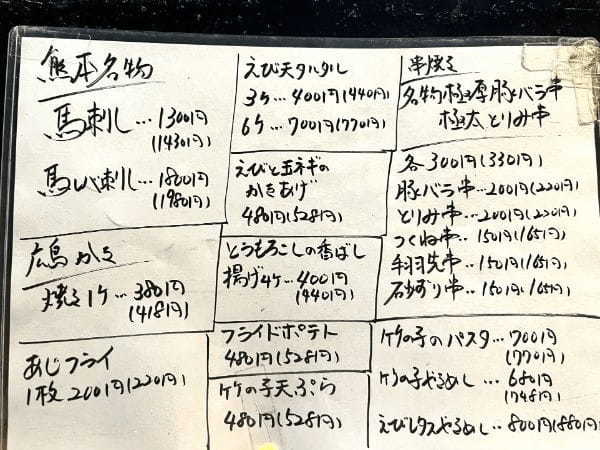 熊本名物
馬刺し…1300円
(1430円)
馬レバ刺し…1800円
(1980円)
広島かき
焼き1ケ…380円
(418円)
あじフライ
1枚200円(220円)
えび天タルタル
3ケ…400円(440円)
6ケ…700円(770円)
えびと玉ネギの
かきあげ
480円(528円)
とうもろこしの香ばし
揚げ4ケ…400円
(440円)
フライドポテト
480円(528円)
竹の子天ぷら
480円(528円)
串焼き
名物極厚豚バラ串
極太とりみ串
各300円(330円)
豚バラ串…200円(220円)
とりみ串…200円(220円)
つくね串‥150円(165円)
手羽先串‥150円(165円)
砂ずり串‥150円(165円)
竹の子のパスタ…700円
(770円)
竹の子やきめし…680円
(748円)
えびレタスやきめし…800円(880円)